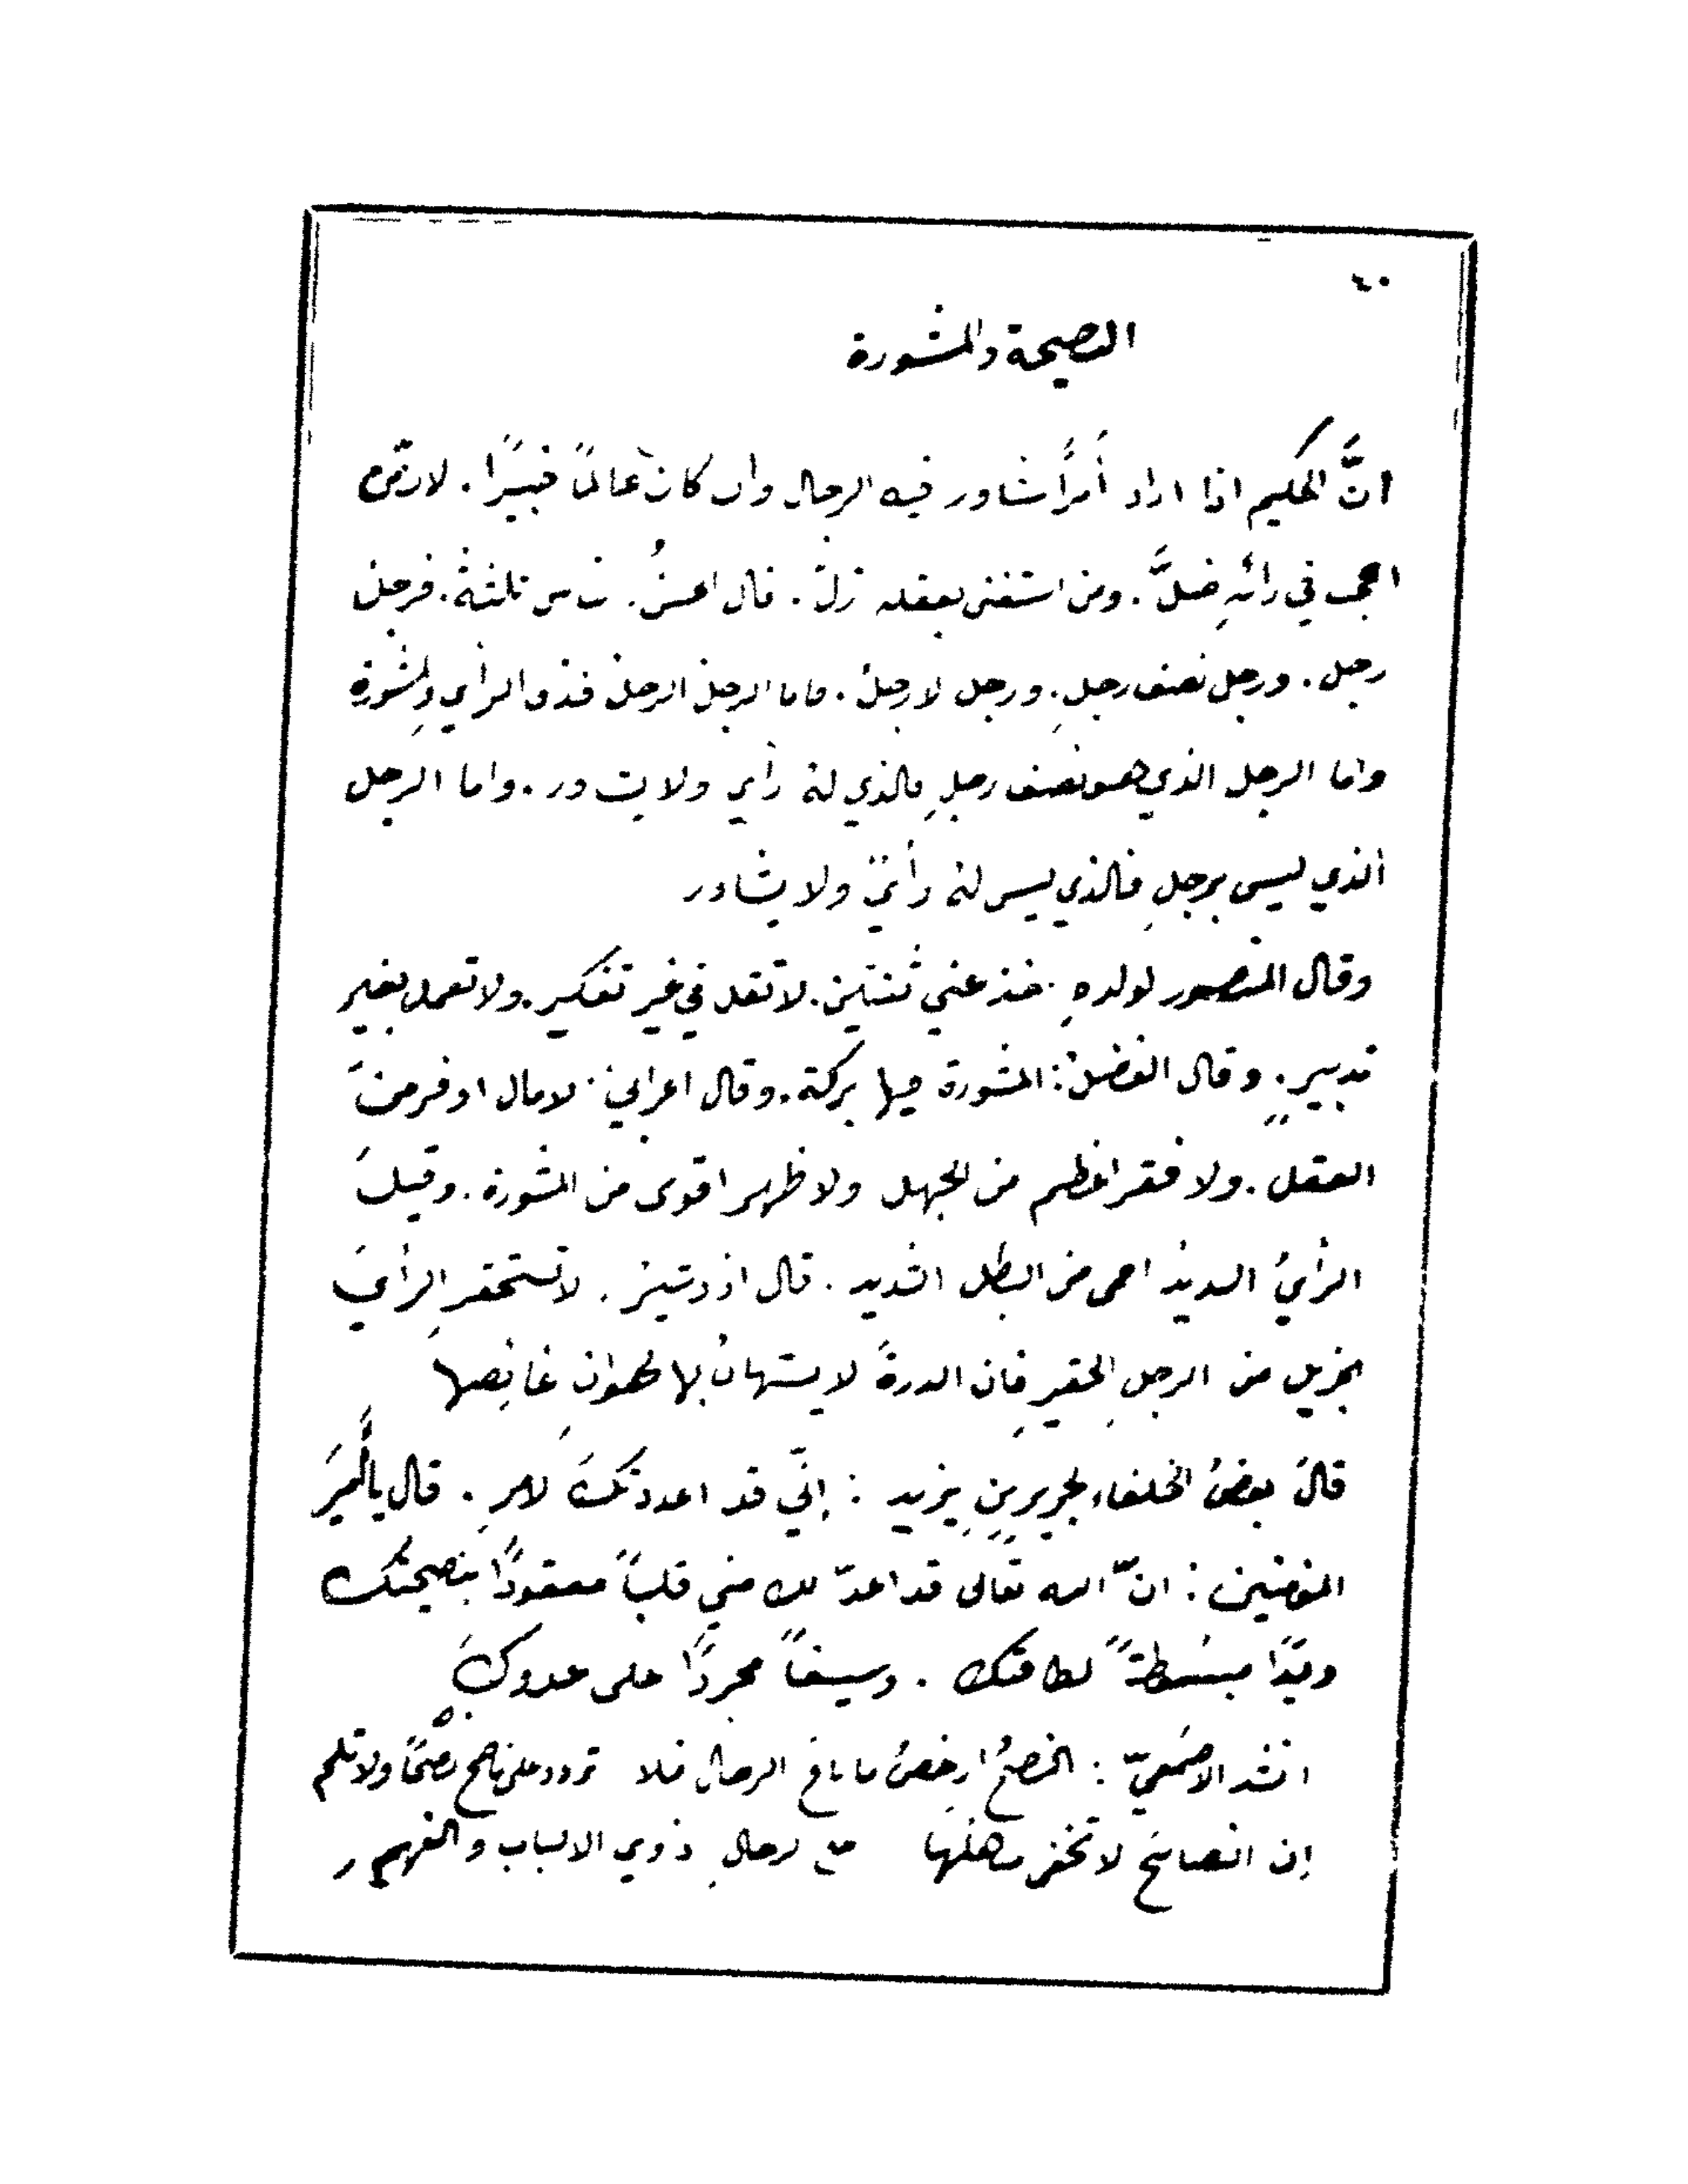 ٤٠
النصيحة والمشورة
انَّ الحكيم اذا اراد أمرًا شاور فيه الرجال وان كان عالمًا خبيرًا. لان من
اعجب في رائهِ ضلَّ. ومن استغنى بعقله زلّ. قال الحسنُ. الناس ثلثة. فرجلٌ
رجل. ورجل نصف رجلٍ. ورجل لا رجلٌ. فاما الرجل الرجل فذو الرأي والمشورة
واما الرجل الذي هو نصف رجلٍ فالذي له رأي ولا يشاور. واما الرجل
الذي ليس برجلٍ فالذي ليس له رأيٌ ولا يشاور
وقال المنصور لولدهِ. خذ عني ثنتين. لا تقل في غير تفكير. ولا تعمل بغير
تدبيرٍ. وقال الفضل: المشورة فيها بركة. وقال اعرابي. لا مال اوفر من
العقل. ولا فقر اعظم من الجهل ولا ظهر اقوى من المشورة. وقيلَ
الرأيُ السديد احمى من البطل الشديد. قال ازدشير. لا تستحقرِ الرأيَ
الجزيل من الرجلِ الحقيرِ فان الدرةً لا يستهان بها لهوانِ غائصها
قالَ بعضُ الخلفاء لجرير بنِ يزيد: إنّي قد اعددتكَ لامرٍ. قال يا أميرَ
المؤمنين: انّ الله تعالى قد اعدّ لك مني قلباً معقودًا بنصيحتك
ويدًا مبسُطةً لطاعتك. وسيفاً مجردًا على عدوكَ
انشد الاصمَعيّ: النصحُ ارخصُ ما باع الرجال فلا تردد على ناصح نصحًا ولا تلم
إن النصائحَ لا تخفى مناهلها على الرجالِ ذوي الالباب والفهم